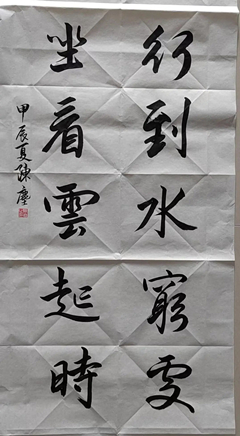 行到水窮處
坐看雲起時
甲辰夏陳塵